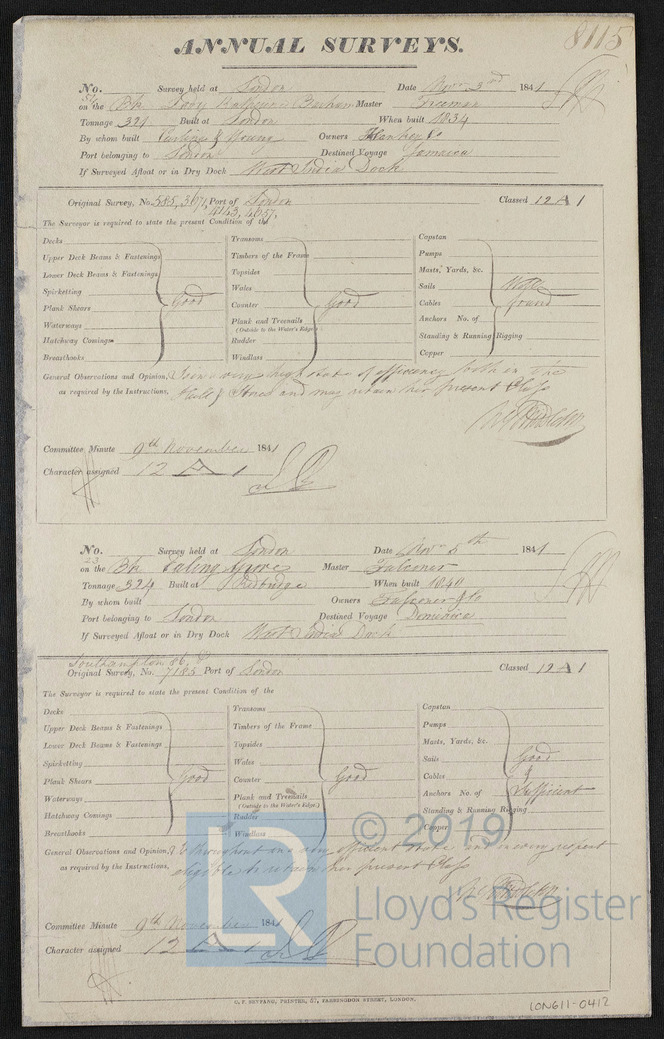 8115
ANNUAL SURVEYS.
No. 56 Survey held at London Date Nov 3rd 1841
on the Bk Master Freeman
Tonnage 321 Built at London When built 1834
By whom built & Young Owners Hankey & Co
Port belonging to London Destined Voyage Jamaica
If Surveyed Afloat or in Dry Dock West India Dock
Original Survey, No. 585, 3671, Port of London Classed 12 A 1
4143, 4657,
The Surveyor is required to state the present Condition of the
Decks Transoms Capstan
Upper Deck Beams & Fastenings Timbers of the Frame Pumps
Lower Deck Beams & Fastenings Topsides Masts, Yards, &c.
Spirketting Wales Sails Well
Plank Shears Good Counter Good Cables found
Waterways Plank and Treenails Anchors No. of
(Outside to the Water's Edge)
Hatchway Comings Rudder Standing & Running Rigging
Breasthooks Windlass Copper
General Observations and Opinion, Is in a very high state of efficiency both in the
as required by the Instructions, Hull & Stores and may retain her present Class
Committee Minute 9th November 1841
Character assigned 12 A 1
No. 23 Survey held at London Date Nov 5th 1841
on the Bk Ealing Grove Master Falconer
Tonnage 324 Built at Redbridge When built 1840
By whom built Owners Falconer & Co
Port belonging to London Destined Voyage Demerara
If Surveyed Afloat or in Dry Dock West India Dock
Southampton 86, &
Original Survey, No. 7185 Port of London Classed 12 A 1
The Surveyor is required to state the present Condition of the
Decks Transoms Capstan
Upper Deck Beams & Fastenings Timbers of the Frame Pumps
Lower Deck Beams & Fastenings Topsides Masts, Yards, &c.
Spirketting Wales Sails Good
Plank Shears Good Counter Good Cables &
Waterways Plank and Treenails Anchors No. of Sufficient
(Outside to the Water's Edge)
Hatchway Comings Rudder Standing & Running Rigging
Breasthooks Windlass Copper
General Observations and Opinion, Is throughout in a very efficient state and in every respect
as required by the Instructions, eligible to retain her present Class
Committee Minute 9th November 1841
Character assigned 12 A 1
LR
© 2019
Lloyd's Register
Foundation
C. F. SEYFANG, PRINTER, 57, FARRINGDON STREET, LONDON.
LON611-0412